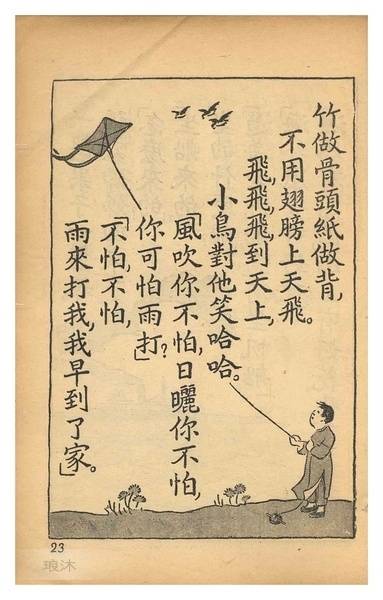 竹做骨頭紙做背，
不用翅膀上天飛。
飛，飛，飛到天上，
小鳥對他笑哈哈。
「風吹你不怕，日曬你不怕，
你可怕雨打？」
「不怕，不怕，
雨來打我，我早到了家。」
23
琅沐